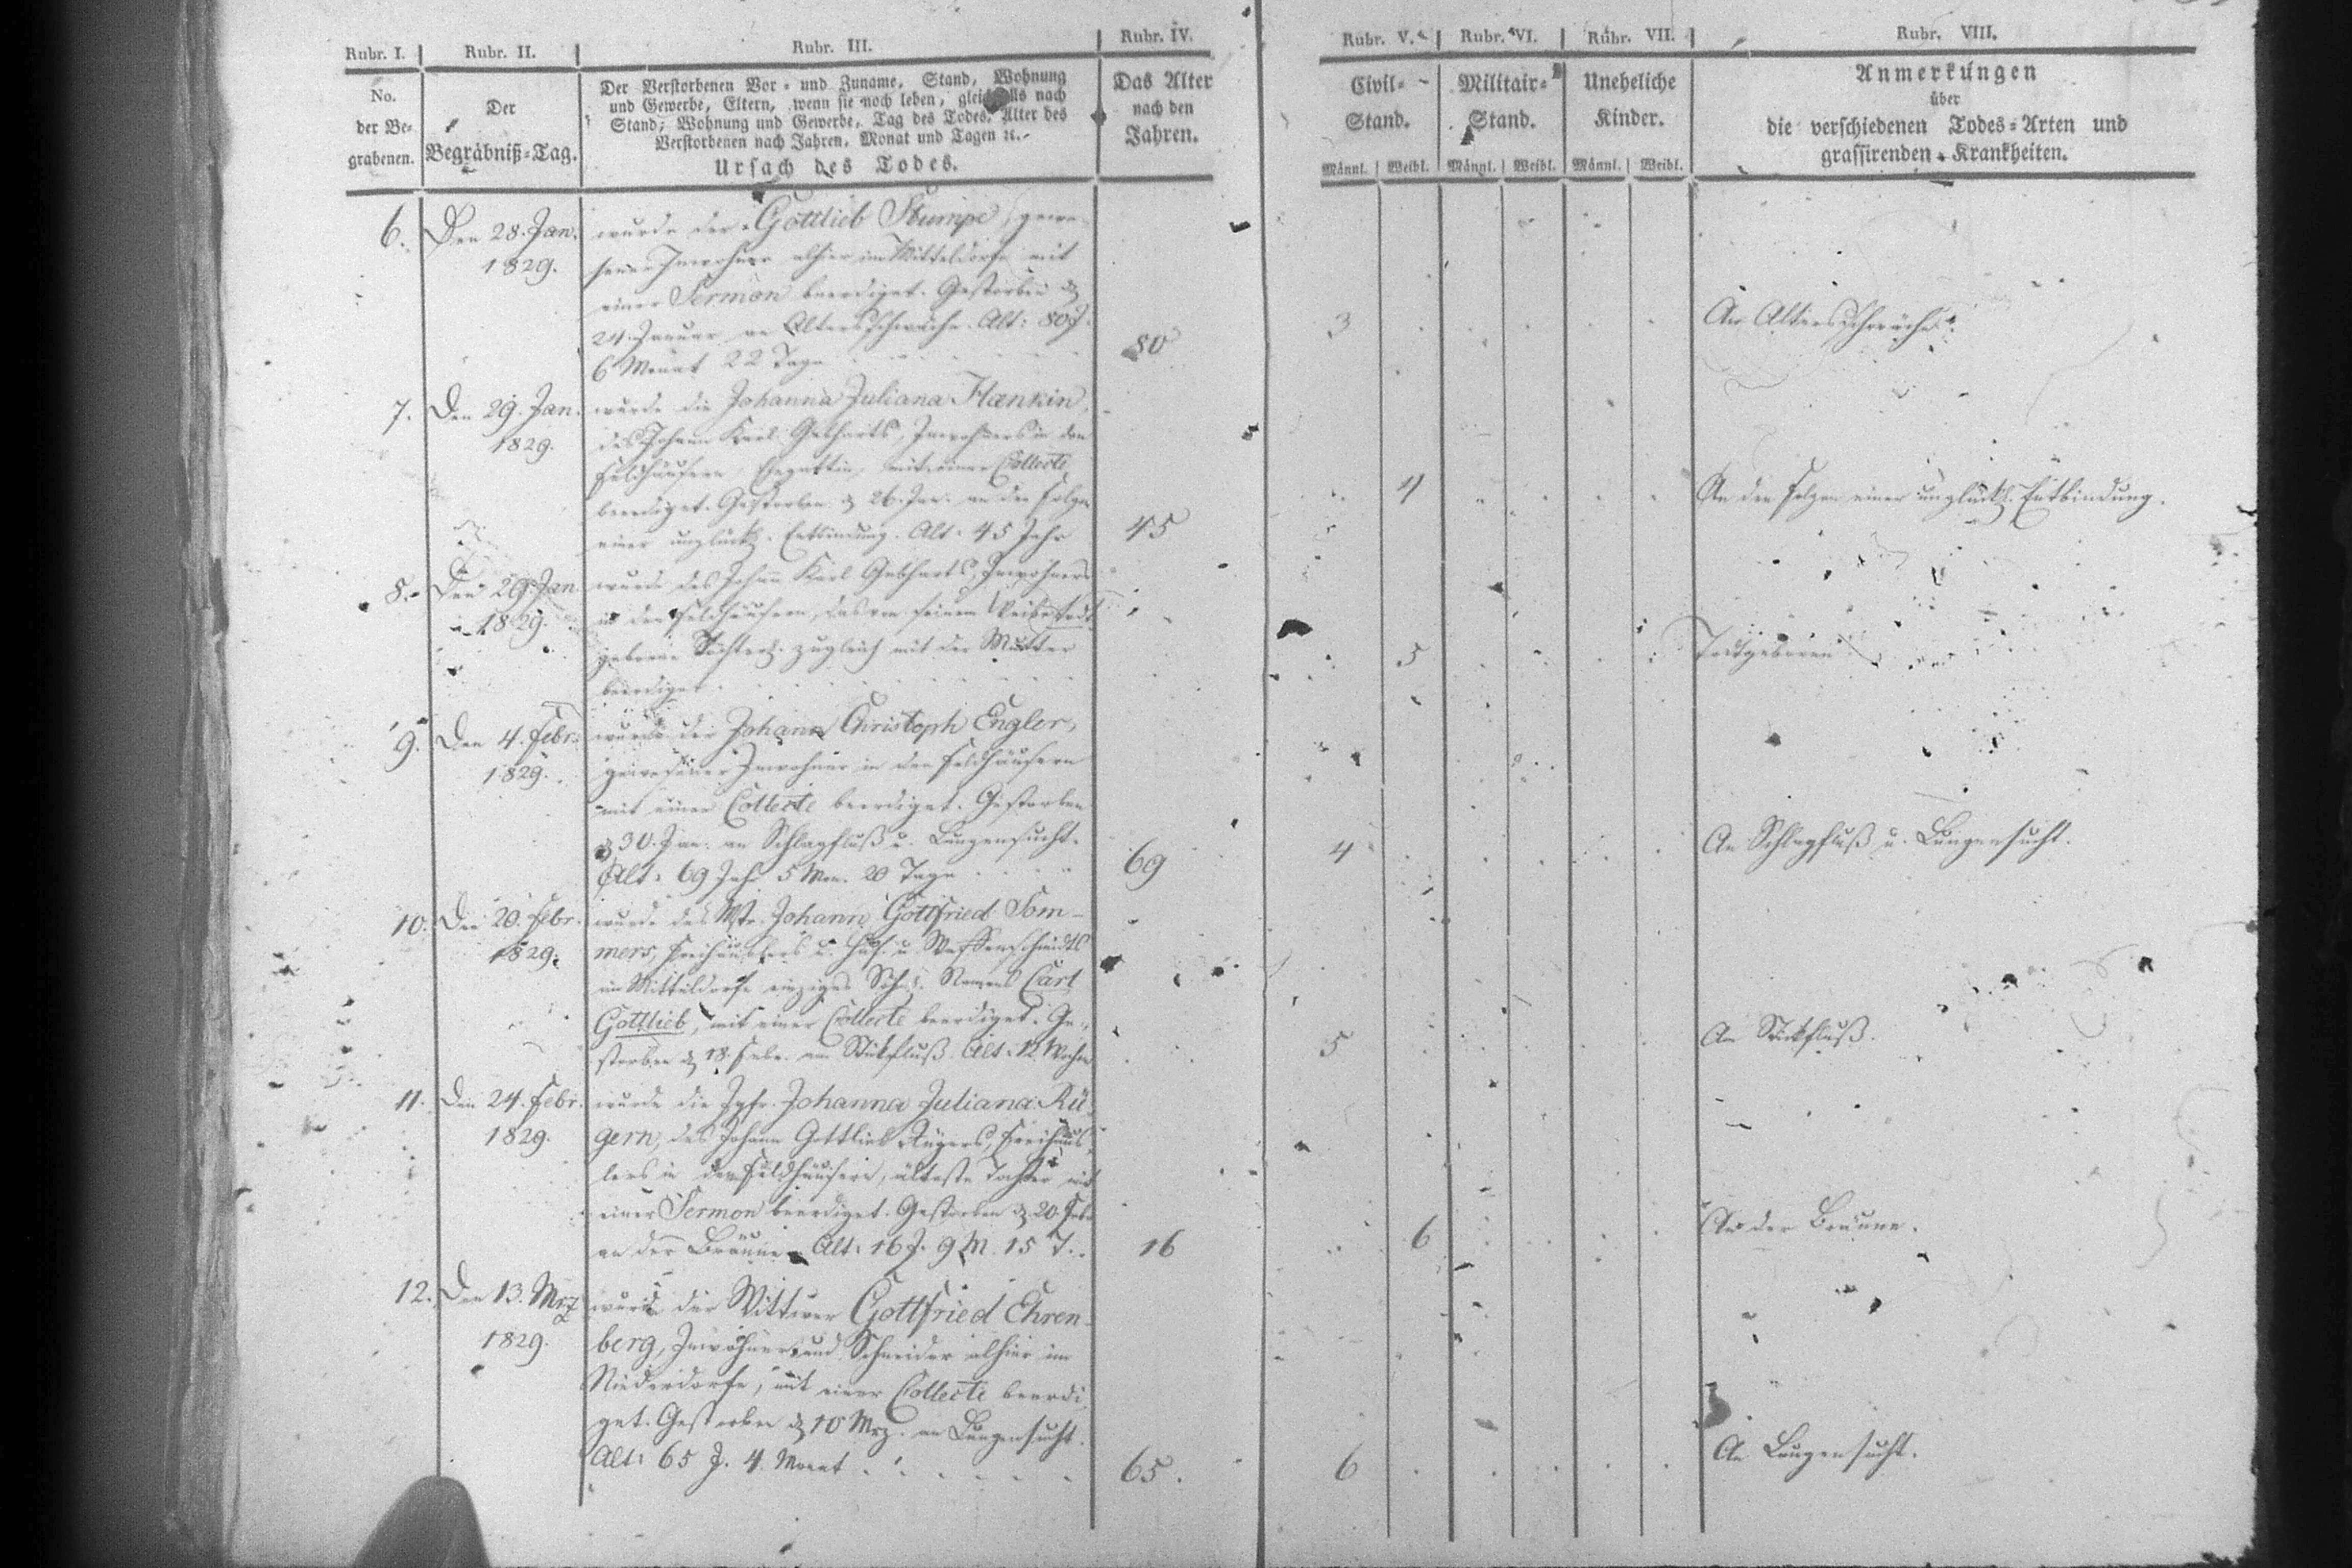 Rubr. I. Rubr. II. Rubr. III. Rubr. IV. Rubr. V. Rubr. VI. Rubr. VII. Rubr. VIII.
No.
der Be-
grabenen.
Der
Begräbniß-Tag.
Der Verstorbenen Vor- und Zuname, Stand, Wohnung
und Gewerbe, Eltern, wenn sie noch leben, gleichfalls nach
Stand, Wohnung und Gewerbe, Tag des Todes. Alter des
Verstorbenen nach Jahren, Monat und Tagen ꝛc.
Ursach des Todes.
Das Alter
nach den
Jahren.
Civil-
Stand.
Männl. Weibl.
Militair-
Stand.
Männl. Weibl.
Uneheliche
Kinder.
Männl. Weibl.
Anmerkungen
über
die verschiedenen Todes-Arten und
grassirenden Krankheiten.
6. Den 28. Jan.
1829.
wurde der Gottlieb Stumpe, gewe-
sener Inwohner alhier im Mitteldorfe mit
einer Sermon beerdiget. Gestorben d.
24. Januar an Altersschwäche. Alt: 80 J.
6 Monat 22 Tage
80
3
An Altersschwäche.
7. Den 29. Jan.
1829.
wurde die Johanna Juliana Hankin,
des Johann Karl Gebharts, Inwohners in den
Feldhäusern, Ehegattin, mit einer Collecte
beerdiget. Gestorben d. 26. Jan. an den Folgen
einer unglückl. Entbindung. Alt: 45 Jahr
45
4
An den Folgen einer unglückl. Entbindung.
8. Den 29. Jan.
1829.
wurde des Johann Karl Gebharts, Inwohners
in den Feldhäusern, das von seinem Weibe todt
geborne Töchterl. zugleich mit der Mutter
beerdiget.
5
Todtgeboren
9. Den 4. Febr.
1829.
wurde der Johann Christoph Engler,
gewesener Inwohner in den Feldhäusern
mit einer Collecte beerdiget. Gestorben
d. 30. Jan. an Schlagfluß u. Lungensucht.
Alt: 69 Jahr 5 Mon. 20 Tage
69
4
An Schlagfluß u. Lungensucht.
10. Den 20. Febr.
1829.
wurde des Mstr. Johann Gottfried Som-
mers, Freihäuslers u. Huf- u. Waffenschmidts
im Mitteldorfe einziges Söhnl. Namens Carl
Gottlieb, mit einer Collecte beerdiget. Ge-
storben d. 18. Febr. an Stickfluß. Alt: 12 Wochen
5
An Stickfluß.
11. Den 24. Febr.
1829.
wurde die Jgfr. Johanna Juliana Rü-
gern, des Johann Gottlieb Rügers, Freihäus-
lers in den Feldhäusern, älteste Tochter mit
einer Sermon beerdiget. Gestorben d. 20. Febr.
an der Bräune. Alt: 16 J. 9 M. 15 T.
16
6
An der Bräune.
12. Den 13. Mrz
1829.
wurde der Wittwer Gottfried Ehren-
berg, Inwohner und Schneider alhier im
Niederdorfe, mit einer Collecte beerdi-
get. Gestorben d. 10 Mrz. an Lungensucht.
Alt: 65 J. 4. Monat
65.
6
An Lungensucht.